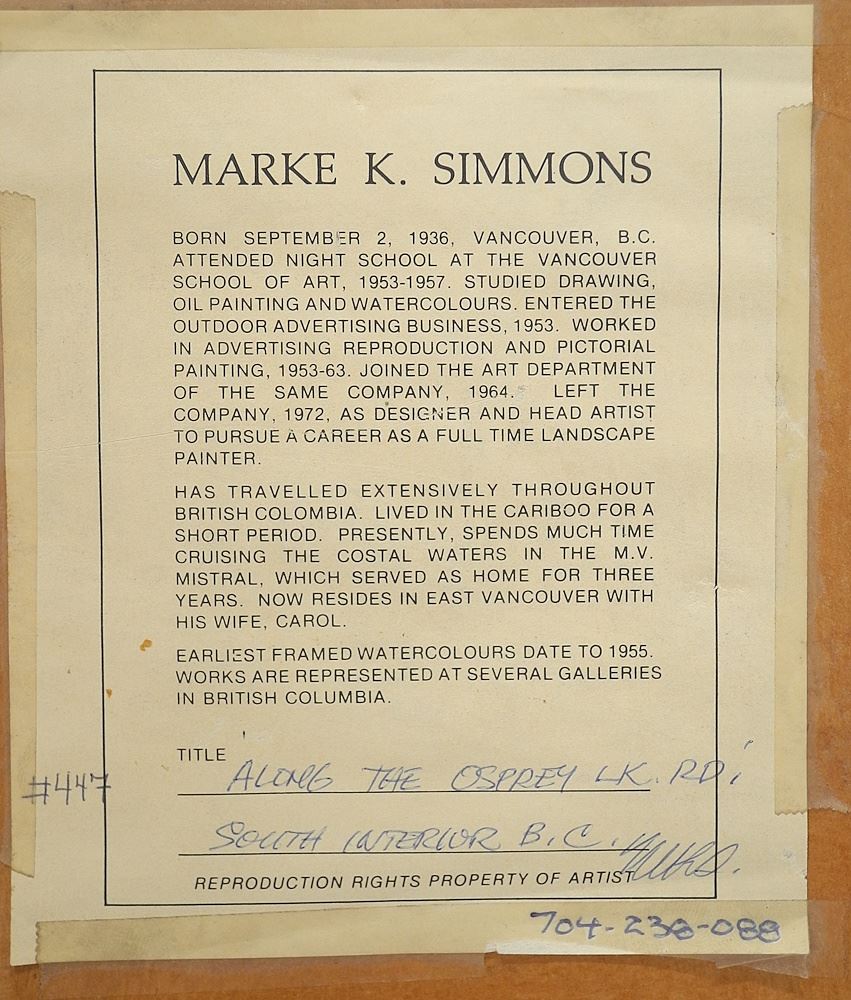 MARKE K. SIMMONS
BORN SEPTEMBER 2, 1936, VANCOUVER, B.C.
ATTENDED NIGHT SCHOOL AT THE VANCOUVER
SCHOOL OF ART, 1953-1957. STUDIED DRAWING,
OIL PAINTING AND WATERCOLOURS. ENTERED THE
OUTDOOR ADVERTISING BUSINESS, 1953. WORKED
IN ADVERTISING REPRODUCTION AND PICTORIAL
PAINTING, 1953-63. JOINED THE ART DEPARTMENT
OF THE SAME COMPANY, 1964. LEFT THE
COMPANY, 1972, AS DESIGNER AND HEAD ARTIST
TO PURSUE A CAREER AS A FULL TIME LANDSCAPE
PAINTER.
HAS TRAVELLED EXTENSIVELY THROUGHOUT
BRITISH COLOMBIA. LIVED IN THE CARIBOO FOR A
SHORT PERIOD. PRESENTLY, SPENDS MUCH TIME
CRUISING THE COSTAL WATERS IN THE M.V.
MISTRAL, WHICH SERVED AS HOME FOR THREE
YEARS. NOW RESIDES IN EAST VANCOUVER WITH
HIS WIFE, CAROL.
EARLIEST FRAMED WATERCOLOURS DATE TO 1955.
WORKS ARE REPRESENTED AT SEVERAL GALLERIES
IN BRITISH COLUMBIA.
TITLE ALONG THE OSPREY LK. RD;
#447
SOUTH INTERIOR B.C.
REPRODUCTION RIGHTS PROPERTY OF ARTIST
704-238-088